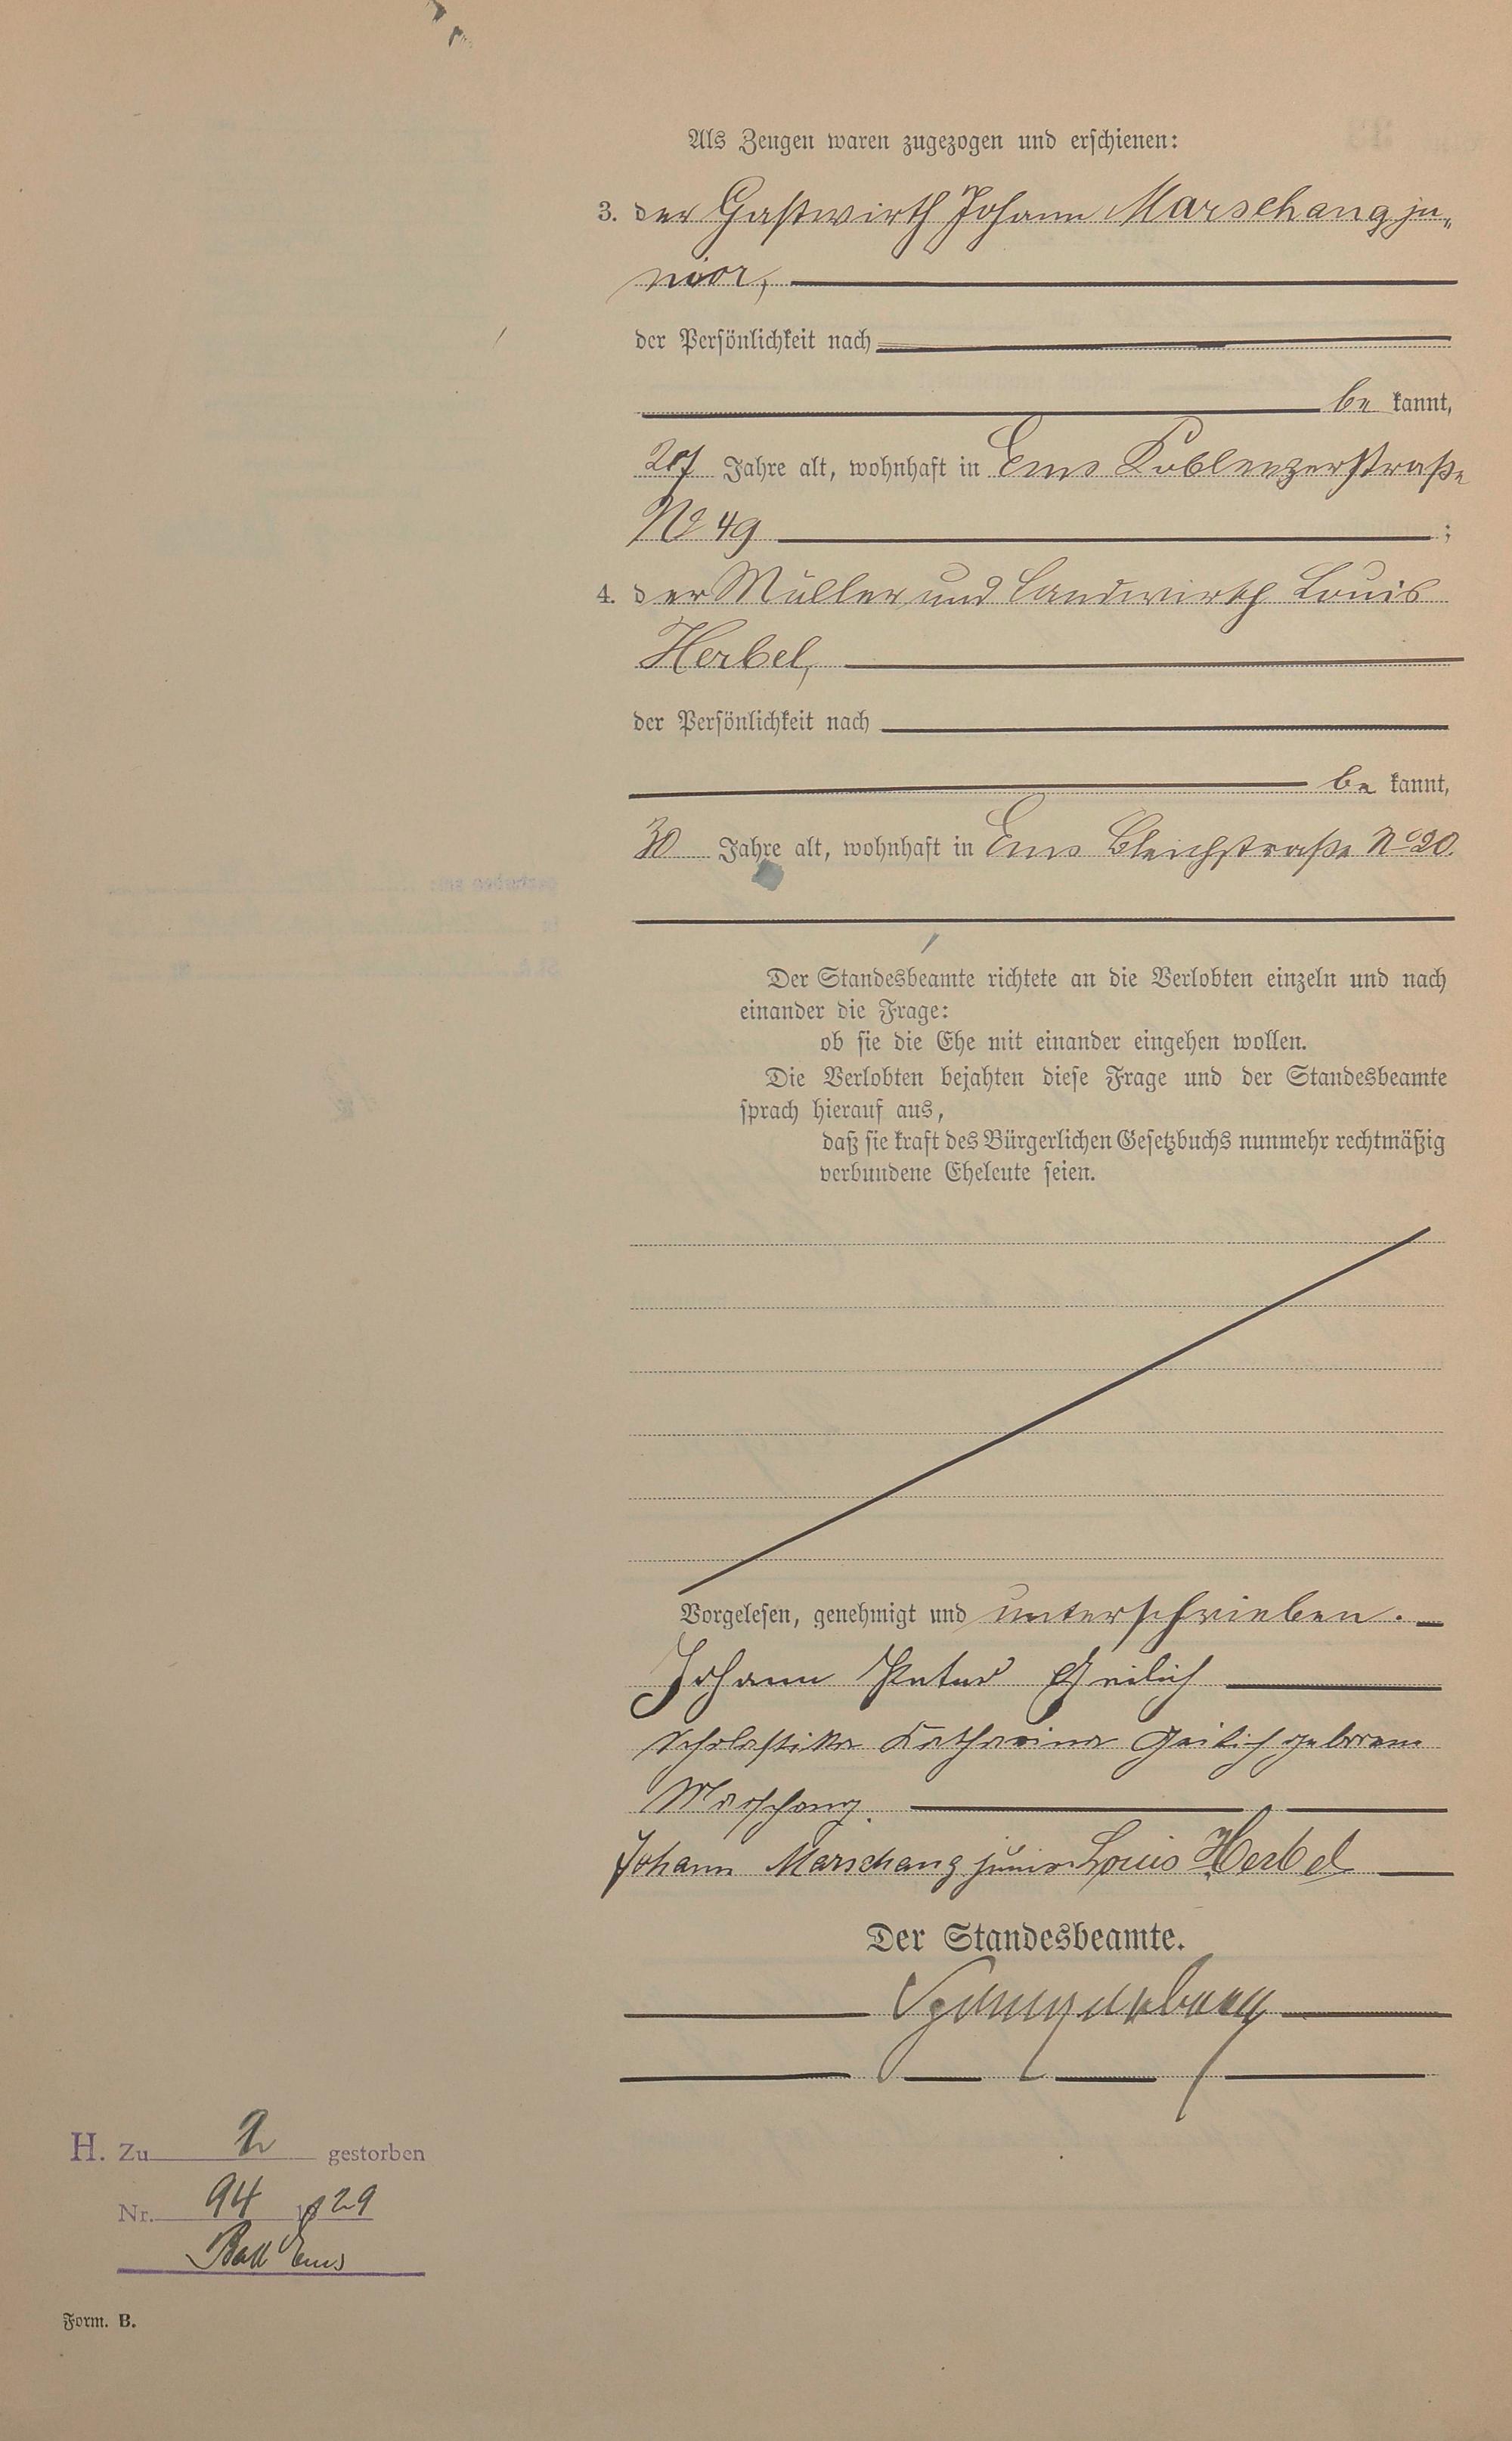 Als Zeugen waren zugezogen und erschienen:
3. der Gastwirth Johann Marschang ju„
nior,
der Persönlichkeit nach
be kannt,
Jahre alt, wohnhaft in Ems Koblenzerstraße
No 49 ;
4. der Müller und Landwirth Louis
Herbel,
der Persönlichkeit nach
be kannt,
30 Jahre alt, wohnhaft in Ems Bleichstraße No 20.
Der Standesbeamte richtete an die Verlobten einzeln und nach
einander die Frage:
ob sie die Ehe mit einander eingehen wollen.
Die Verlobten bejahten diese Frage und der Standesbeamte
sprach hierauf aus,
daß sie kraft des Bürgerlichen Gesetzbuchs nunmehr rechtmäßig
verbundene Eheleute seien.
Vorgelesen, genehmigt und unterschrieben.
Johann Peter Geilich
Scholastika Katharina Geilich geborene
Marschang.
Johann Marschang junior Louis Herbel
Der Standesbeamte.
H. Zu gestorben
Nr. 94 1929
Bad Ems
Form. B.